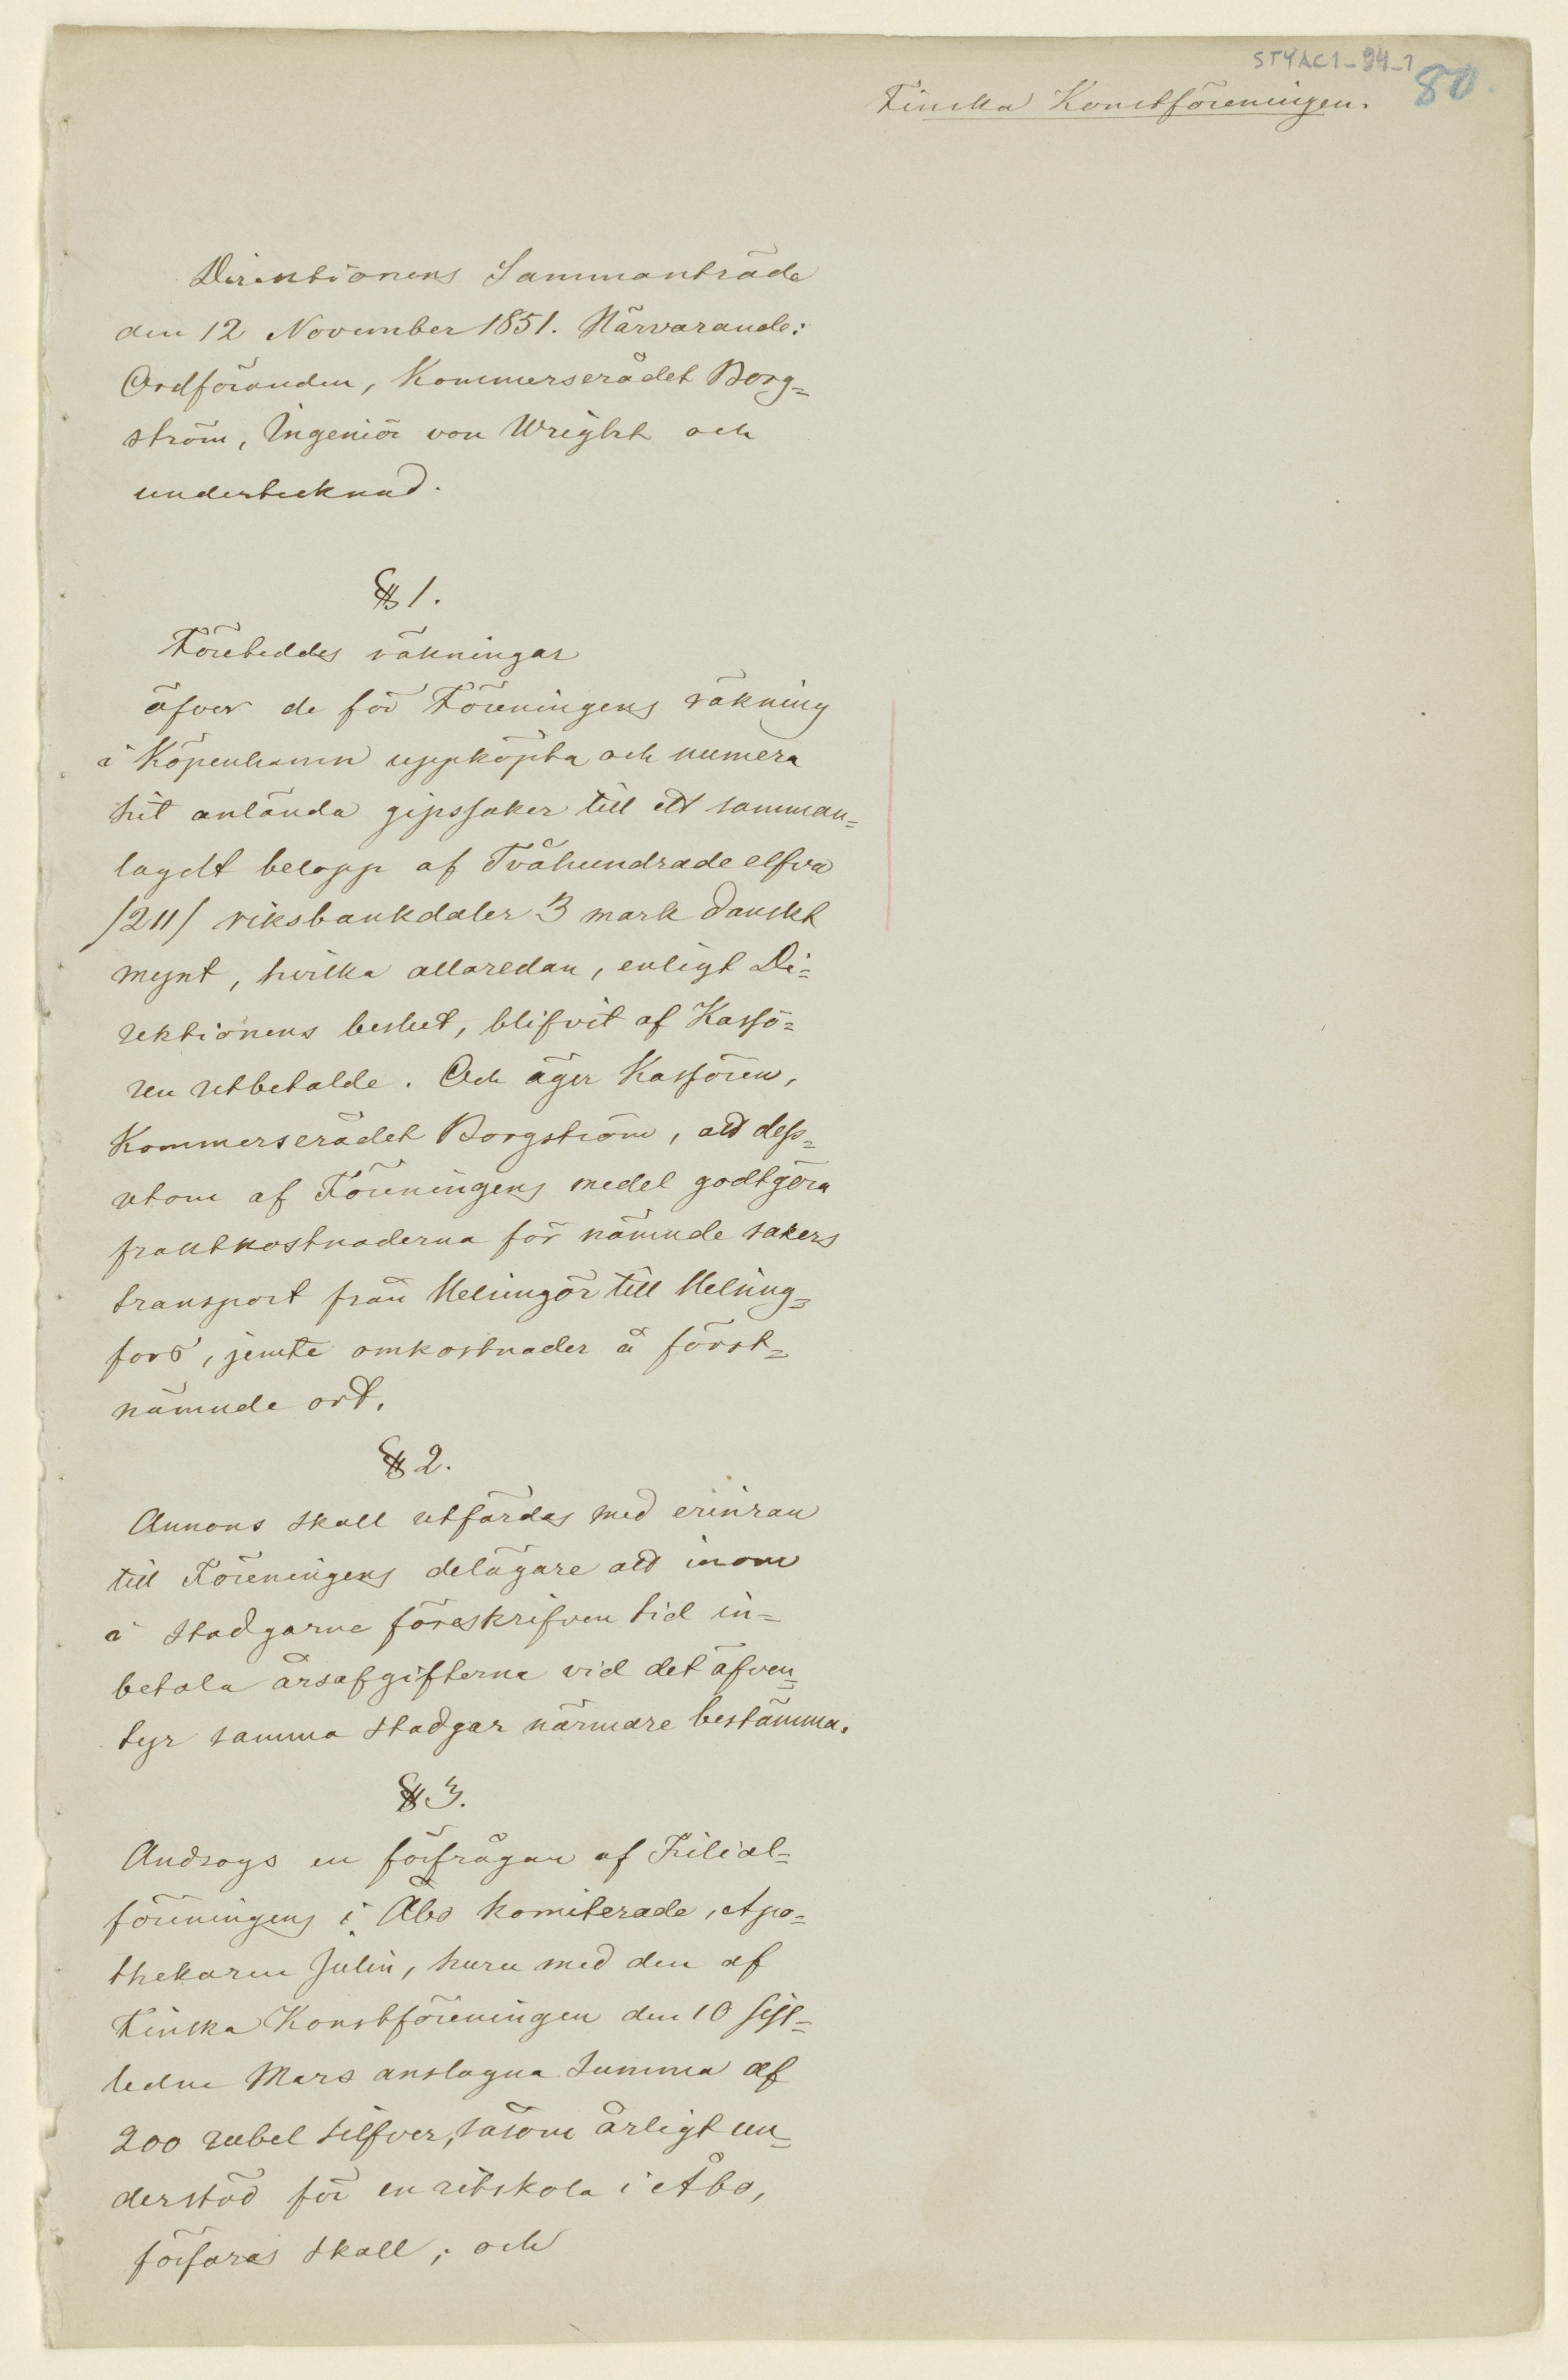 STYAC1-94-1
80.
Finska Konstföreningen.
Direktionens Sammanträde
den 12 November 1851. Närvarande:
Ordföranden, Kommerserådet Borg=
ström, Ingeniör von Wright och
undertecknad.
§ 1.
Företeddes räkningar
öfver de för Föreningens räkning
i Köpenhamn uppköpta och numera
hit anlända gipssaker till ett samman=
lagdt belopp af Tvåhundrade elfva
/211/ riksbankdaler 3 mark danskt
mynt, hvilka allaredan, enligt Di=
rektionens beslut, blifvit af Kassö=
ren utbetalde. Och äger Kassören,
Kommerserådet Borgström, att dess=
utom af Föreningens medel godtgöra
fraktkostnaderna för nämnde sakers
transport från Helsingör till Helsing=
fors, jemte omkostnader å först=
nämnde ort.
§ 2.
Annons skall utfärdas med erinran
till Föreningens delägare att inom
i stadgarne föreskrifven tid in=
betala årsafgifterna vid det äfven=
tyr samma stadgar närmare bestämma.
§ 3.
Androgs en förfrågan af Filial=
föreningens i Åbo komiterade, Apo=
thekaren Julin, huru med den af
Finska Konstföreningen den 10 sist=
ledne Mars anslagna Summa af
200 rubel silfver, såsom årligt un=
derstöd för en ritskola i Åbo,
förfaras skall; och